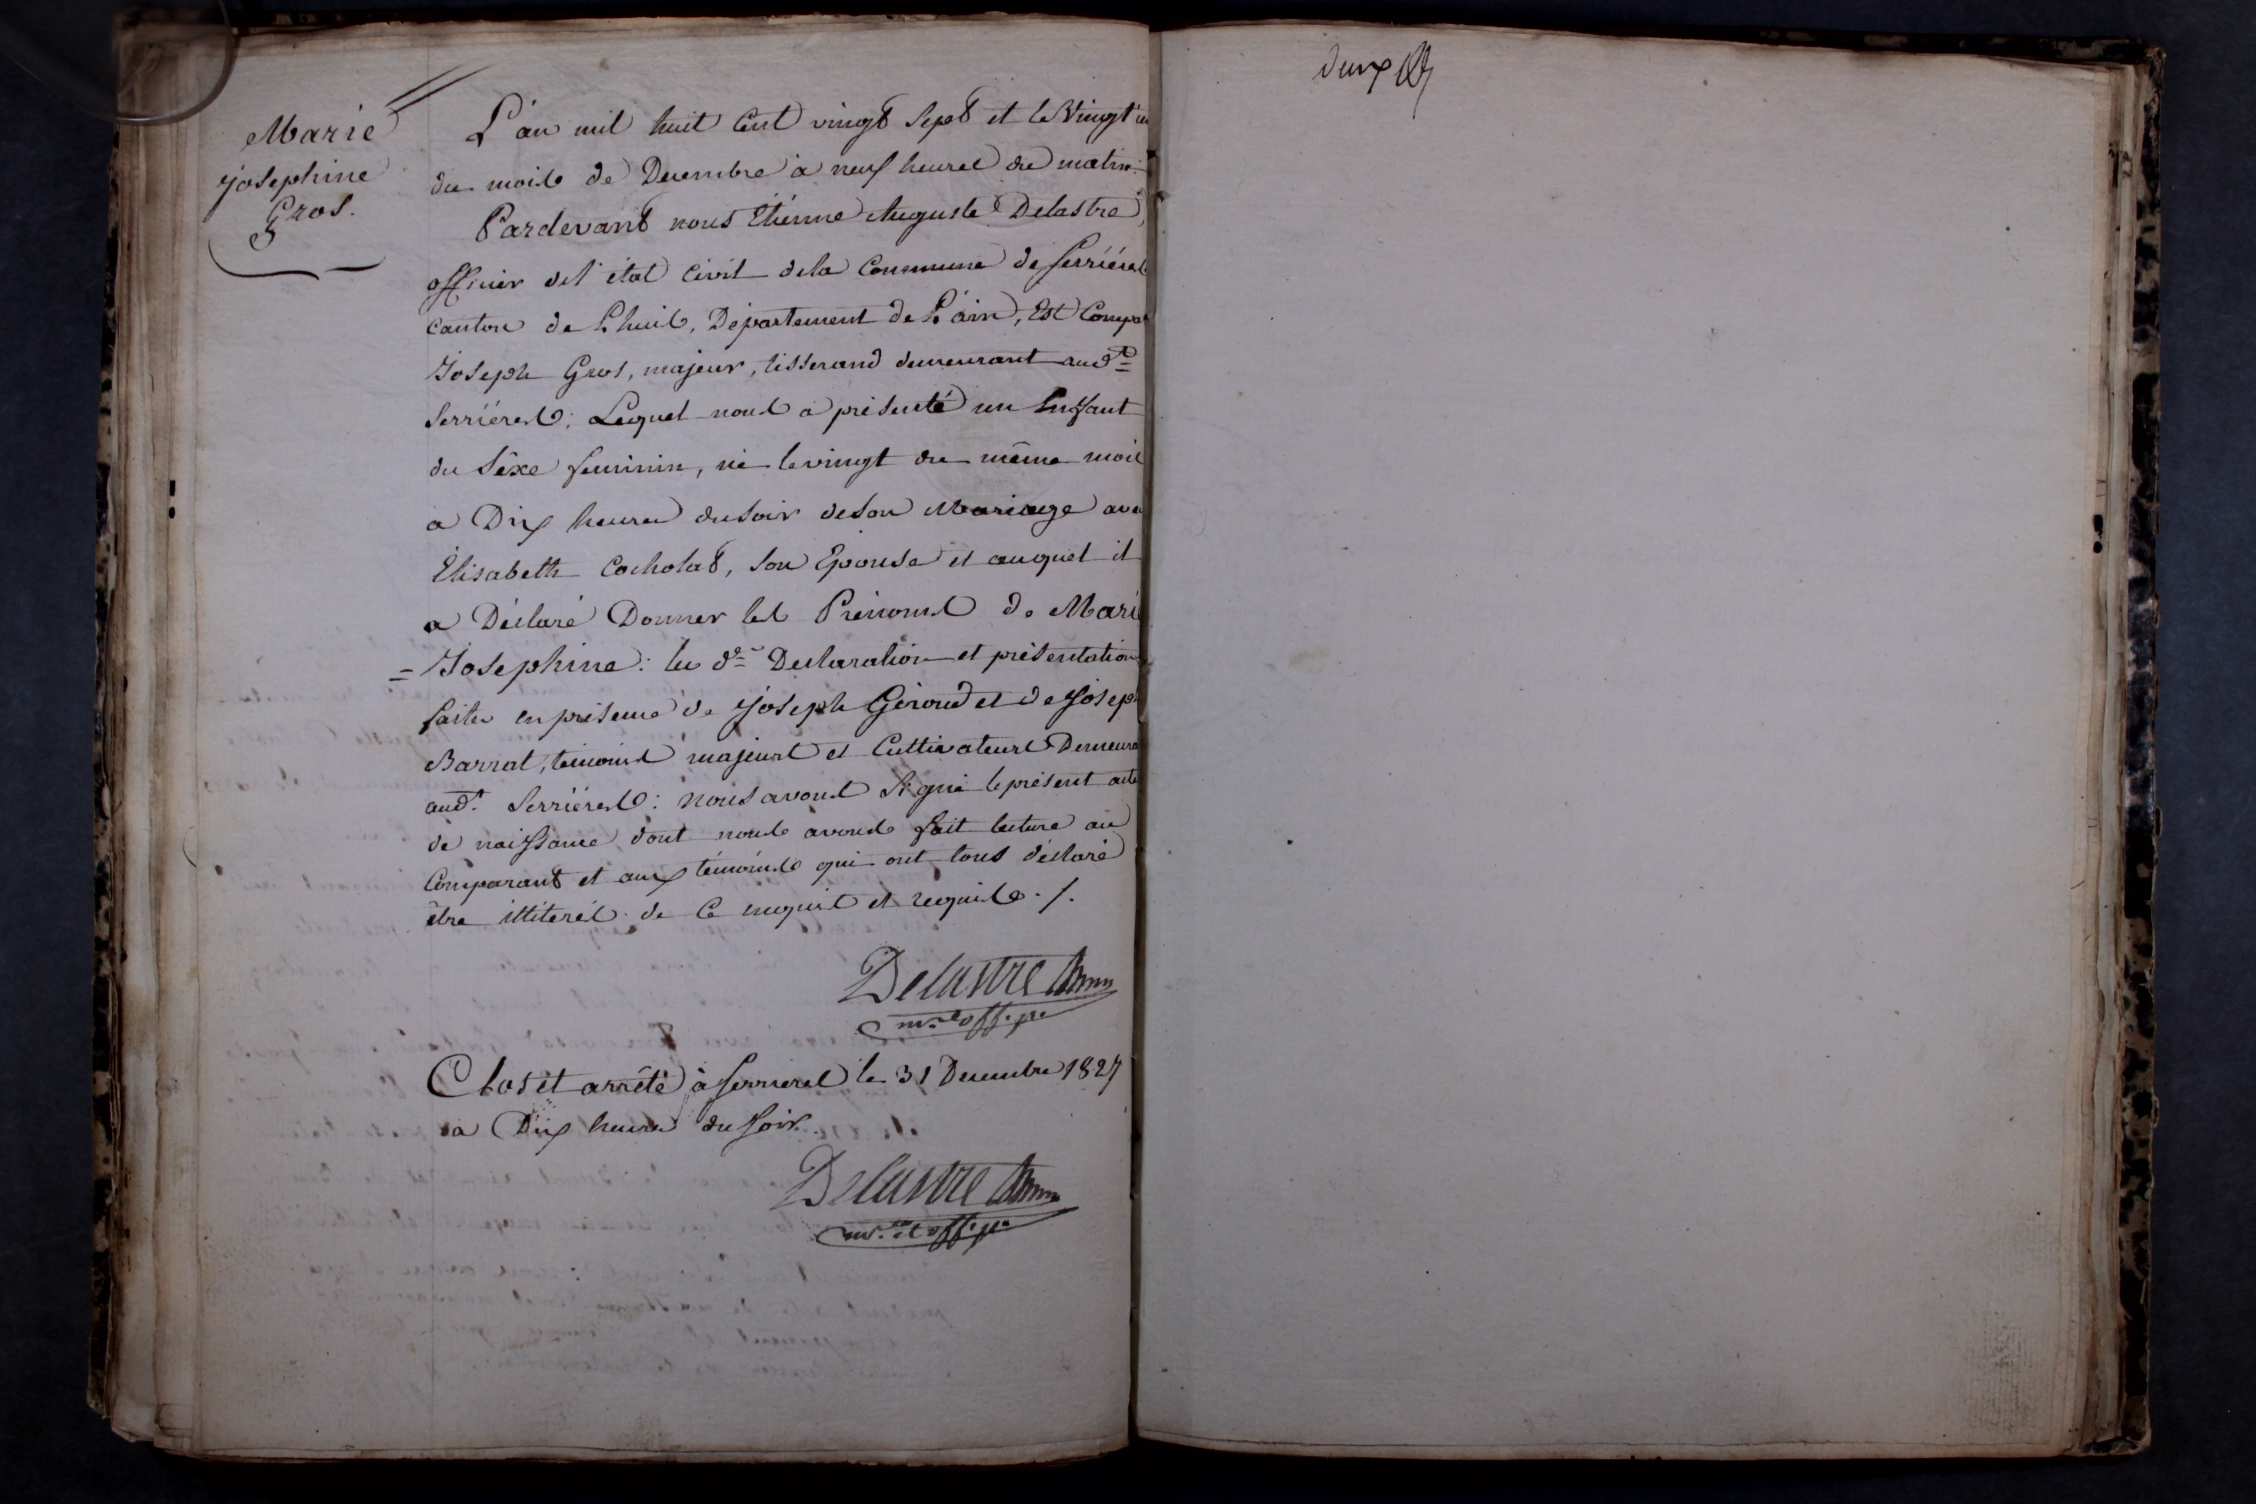 Marie
Josephine
Gros.
L'an mil huit Cent vingt Sept et le Vingt un
du mois de Decembre à neuf heures du matin.
Pardevant nous Etiènne Auguste Delastre,
officier de l'état Civil de la Commune de Serrières
Canton de Lhuis, Département de L'ain, Est Compa
Joseph Gros, majeur, tisserand demeurant audt
Serrières; Lequel nous a présenté un Enfant
du Sèxe feminin, né le vingt du même mois
a Dix heures du soir de son Mariage avec
Elisabeth Cocholat, son Epouse et auquel il
a Déclaré Donner les Prénoms de Marie
= Josephine: les dtes Declaration et présentation
faites en présence de Joseph Géroud et de Joseph
Barrat, témoins majeurs et Cultivateurs Demeura
audt Serrières: nous avons Signé le présent acte
de naissance dont nous avons fait lecture au
Comparant et aux témoins qui ont tous déclaré
être illiterés de Ce enquis et requis ./.
Delastre
Clos et arrêté à Serrieres le 31 Decembre 1827
a Dix heures du soir.
Delastre
deux